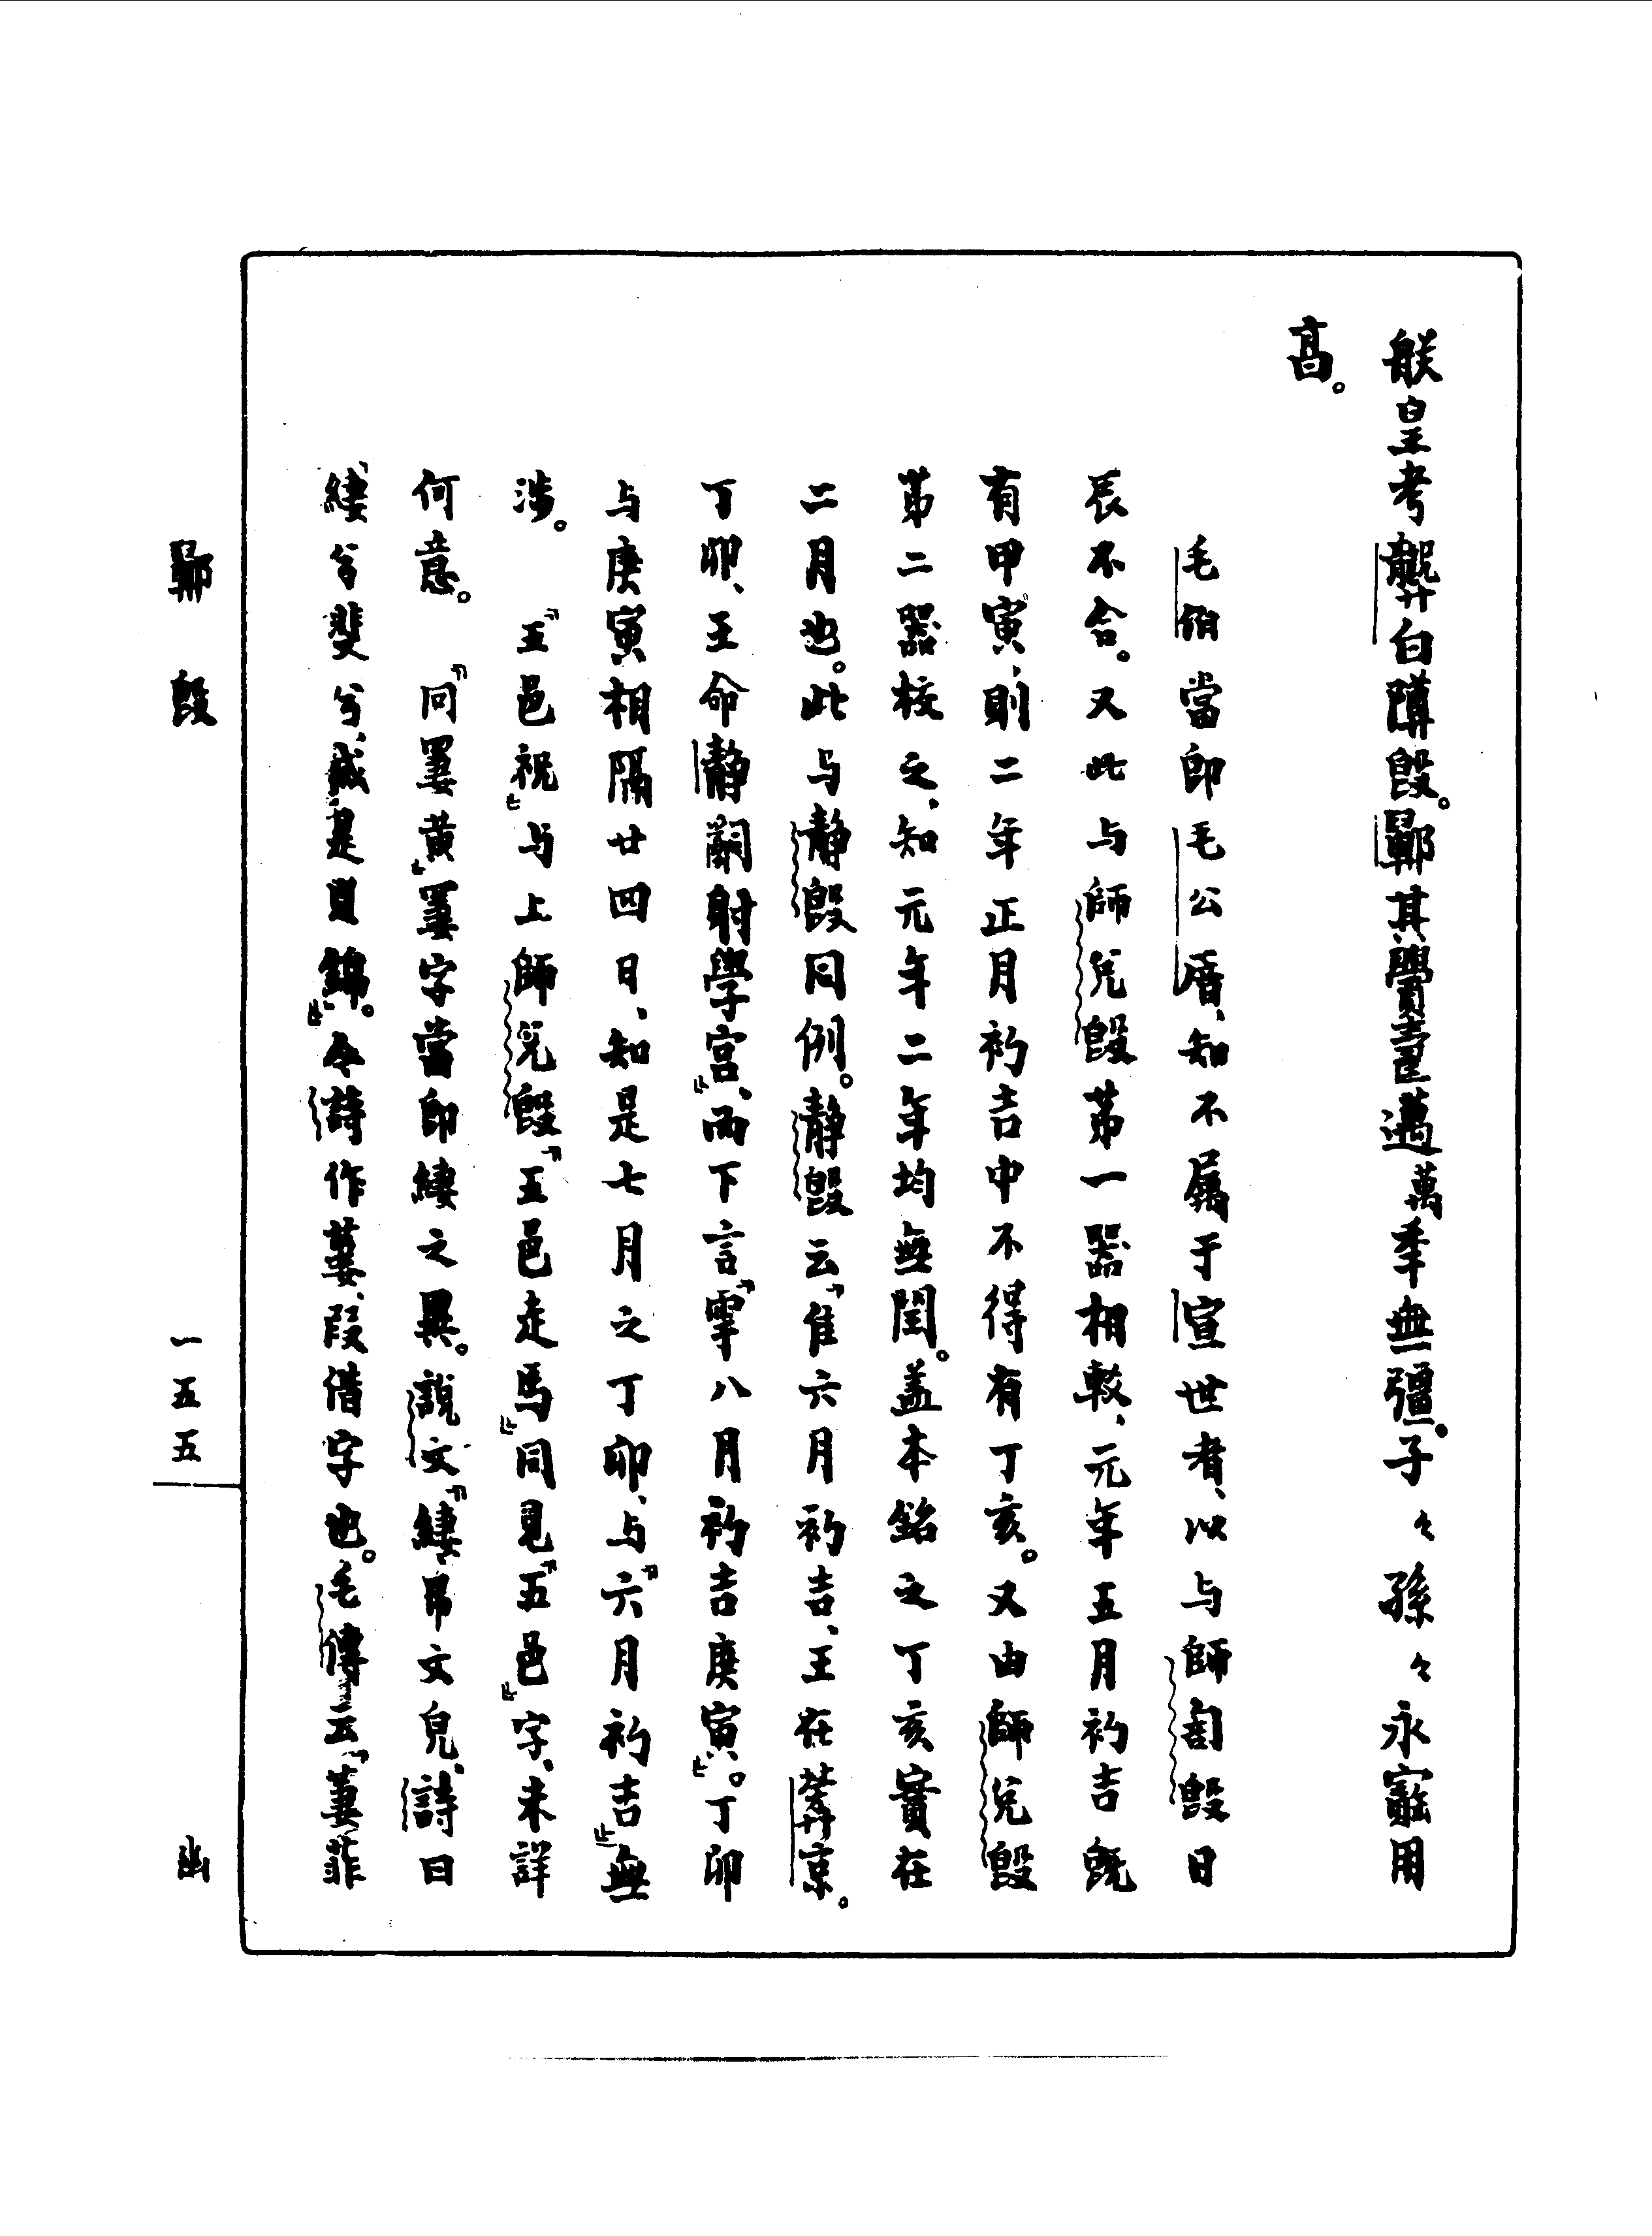 朕皇考龏白𨺅𣪘。其釁壽邁萬年無彊。子々孫々永寶用
亯。
毛伯當即毛公厝、知不屬于宣世者、以与師訇𣪘日
辰不合。又此与師兌𣪘第一器相較、元年五月初吉既
有甲寅、則二年正月初吉中不得有丁亥。又由師兌𣪘
第二器校之、知元年二年均無閏。盖本銘之丁亥實在
二月也。此与静𣪘同例。静𣪘云「隹六月初吉、王在葊京。
丁卯、王命静嗣射學宫」、而下言「雩八月初吉庚寅」。丁卯
与庚寅相隔廿四日、知是七月之丁卯、与「六月初吉」無
涉。　「五邑祝」与上師兌𣪘「五邑走馬」同見「五邑」字、未詳
何意。　「冋䙴黃」䙴字當即緀之異。説文「緀、帛文皃、詩曰
『緀兮斐兮、成是貝錦。』」今詩作萋、叚借字也。毛傳云「萋菲
𣪘
一五五